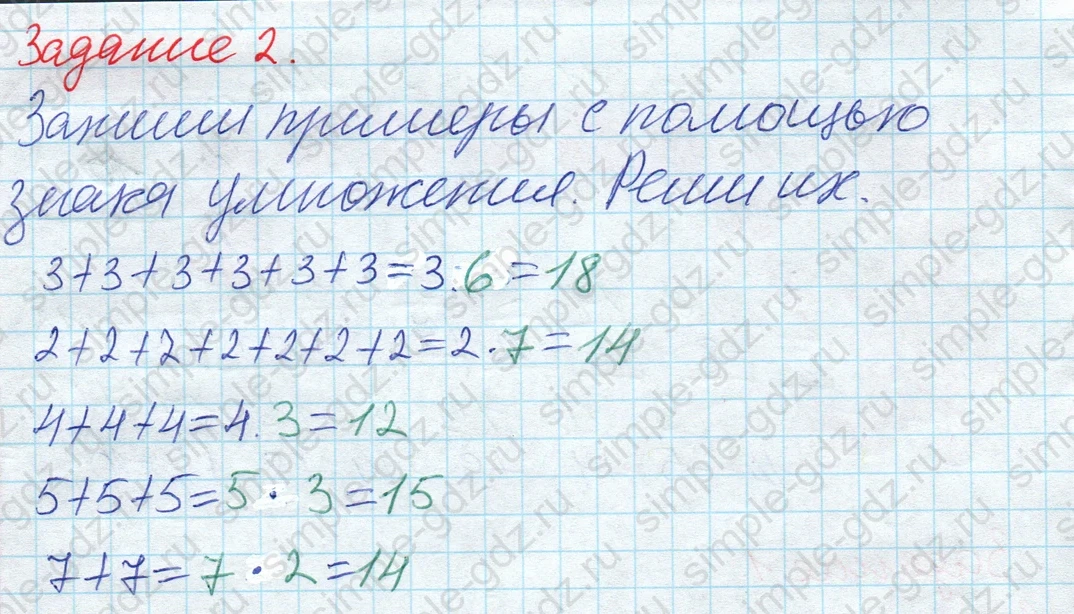 Задание 2.
Запиши примеры с помощью
знака умножения. Реши их.
3+3+3+3+3+3=3·6=18
2+2+2+2+2+2+2=2·7=14
4+4+4=4·3=12
5+5+5=5·3=15
7+7=7·2=14
simple-gdz.ru